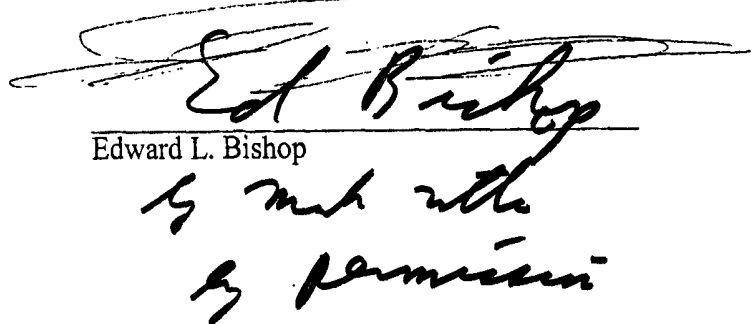 Ed Bishop
Edward L. Bishop
by Mark
by permission